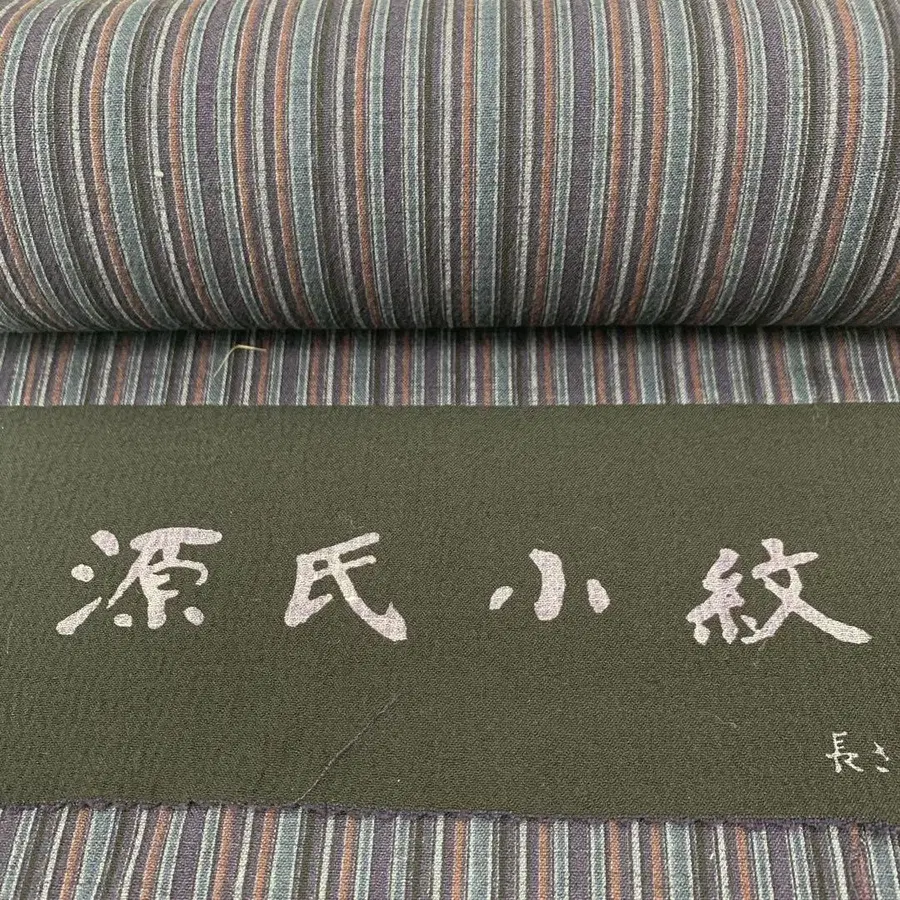 源氏小紋
長さ